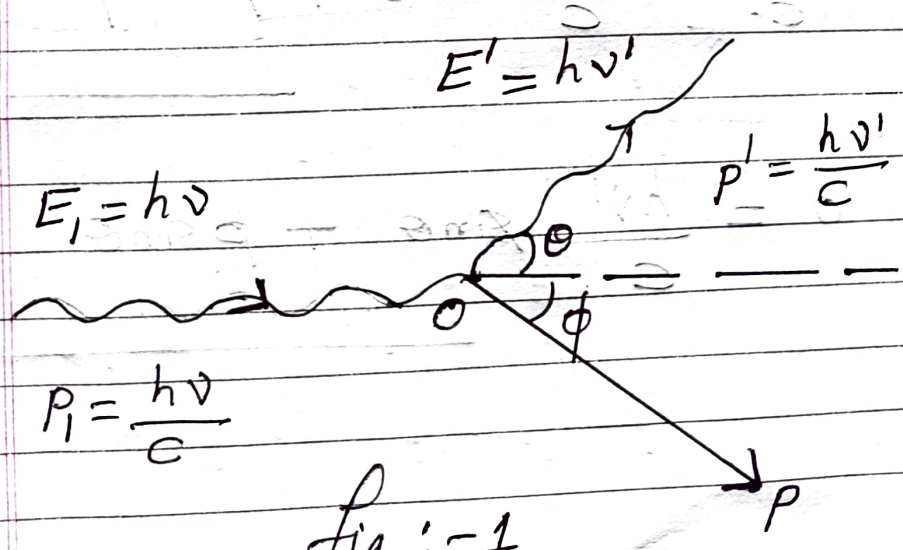 E' = hν'
p' = hν'/c
E₁ = hν
θ
O
ϕ
P₁ = hν/c
P
fig :- 1